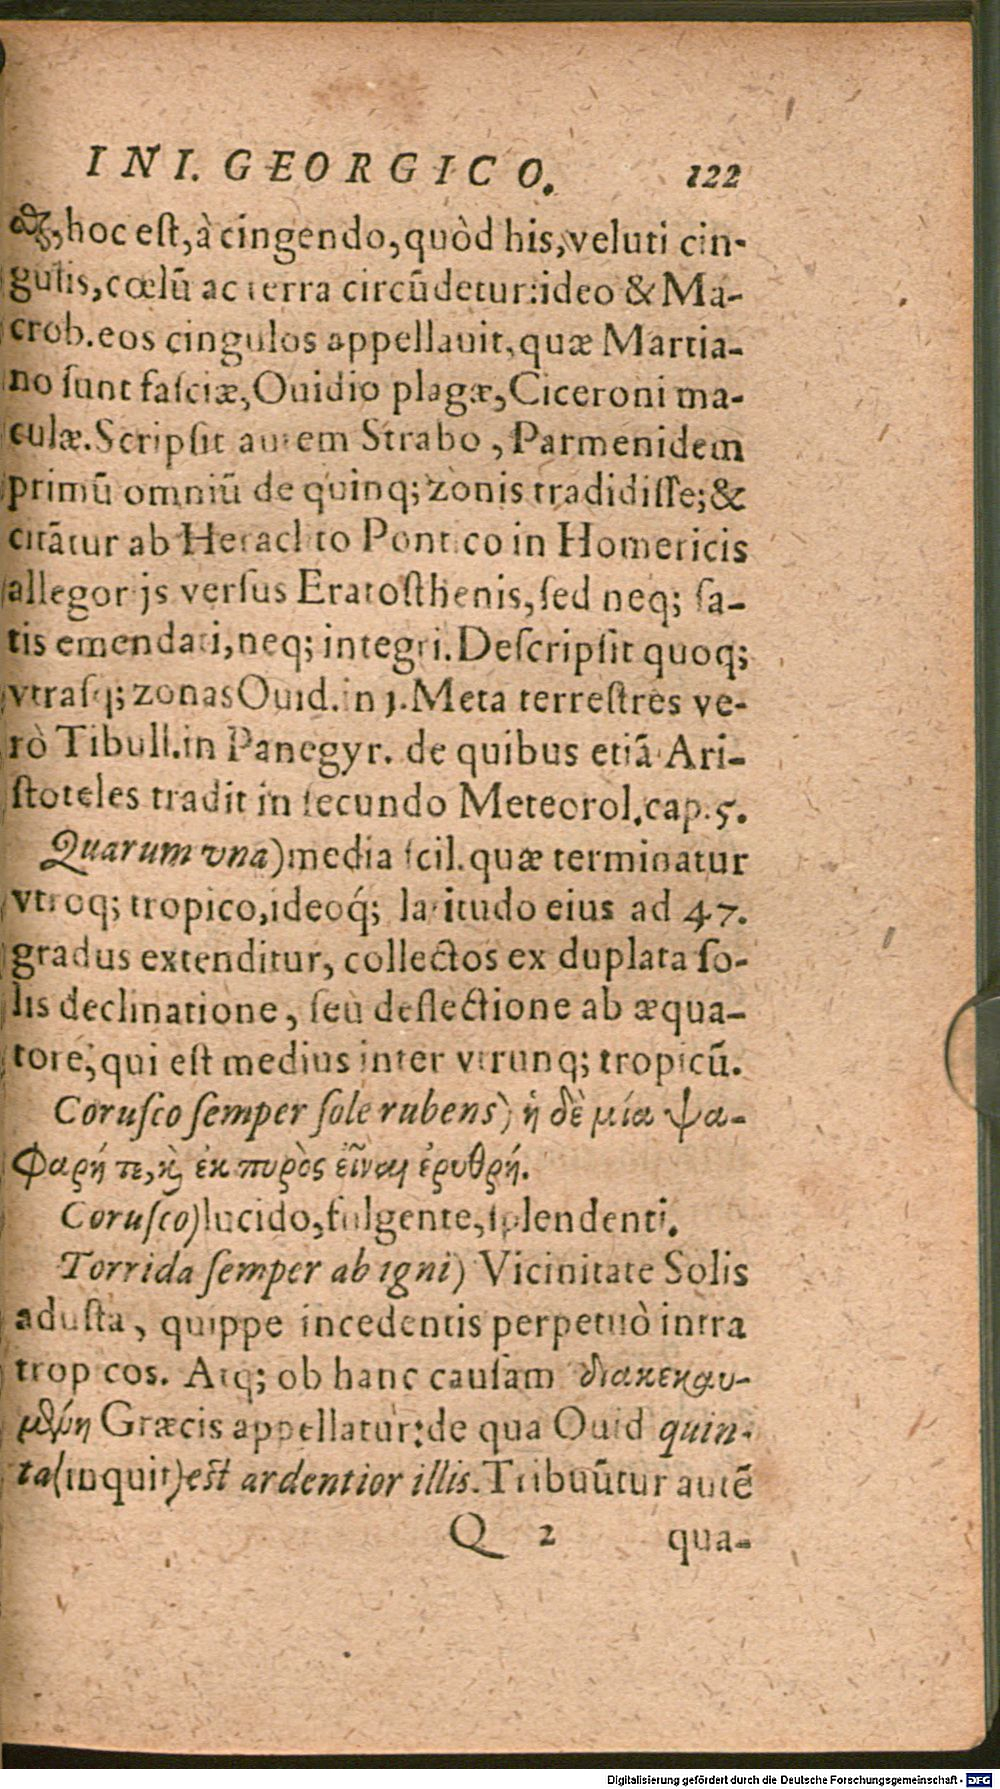 IN I. GEORGICO. 122
hoc est, à cingendo, quòd his, veluti cin-
gulis, cœlũ ac terra circũdetur: ideo & Ma-
crob. eos cingulos appellauit, quæ Martia-
no ſunt faſciæ, Ouidio plagæ, Ciceroni ma-
culæ. Scripſit autem Strabo, Parmenidem
primũ omniũ de quinq; zonis tradidiſſe; &
citãtur ab Heraclito Pontico in Homericis
allegorijs verſus Eratoſthenis, ſed neq; ſa-
tis emendati, neq; integri. Deſcripſit quoq;
vtraſq; zonas Ouid. in j. Meta terreſtres ve-
rò Tibull. in Panegyr. de quibus etiã Ari-
ſtoteles tradit in ſecundo Meteorol. cap. 5.
Quarum vna) media ſcil. quæ terminatur
vtroq; tropico, ideoq́; latitudo eius ad 47.
gradus extenditur, collectos ex duplata ſo-
lis declinatione, ſeu deflectione ab æqua-
tore, qui eſt medius inter vtrunq; tropicũ.
Coruſco ſemper ſole rubens) ἡ δὲ μία ψα-
φαρή τε, κ̀ ἐκ πυρὸς εἶναι ἐρυθρή.
Coruſco) lucido, fulgente, ſplendenti.
Torrida ſemper ab igni) Vicinitate Solis
aduſta, quippe incedentis perpetuò intra
tropicos. Atq; ob hanc cauſam διακεκαυ-
μένη Græcis appellatur: de qua Ouid quin-
ta (inquit) eſt ardentior illis. Tribuũtur autẽ
Q 2 qua-
Digitalisierung gefördert durch die Deutsche Forschungsgemeinschaft - DFG